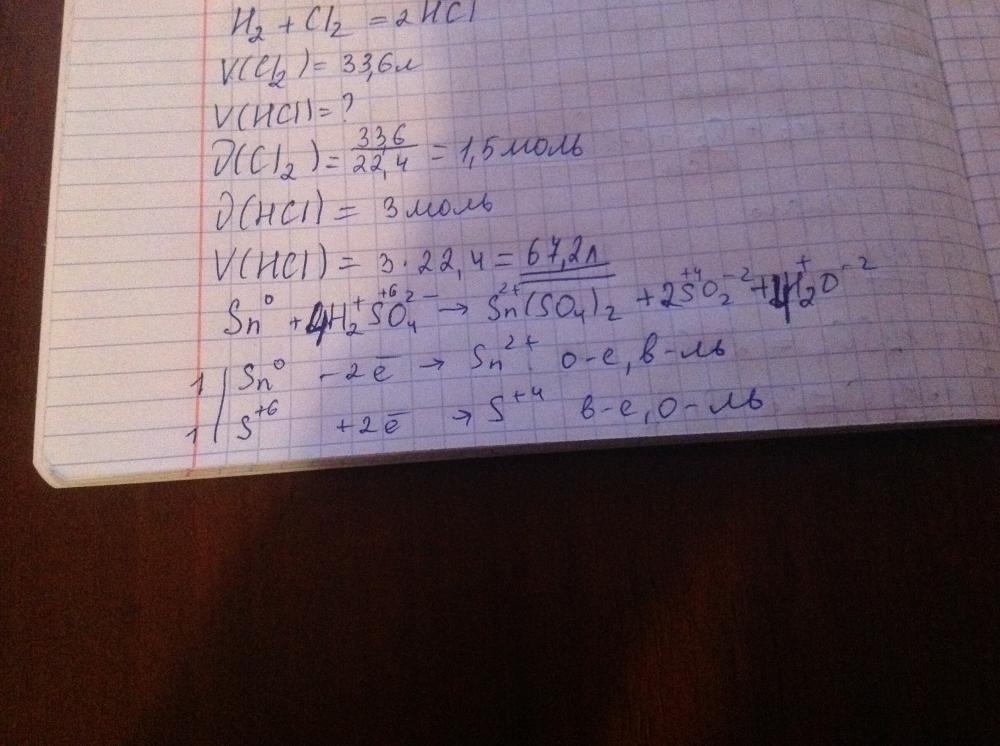 H₂ + Cl₂ = 2HCl
V(Cl₂) = 33,6л
V(HCl) = ?
∂(Cl₂) = 336/22,4 = 1,5 моль
∂(HCl) = 3 моль
V(HCl) = 3·22,4 = 67,2л
Sn⁰ + 4H₂⁺S⁺⁶O₄²⁻ → Sn²⁺(SO₄)₂ + 2S⁺⁴O₂⁻² + 4H₂⁺O⁻²
1 | Sn⁰ – 2ē → Sn²⁺ о-е, в-ль
1 | S⁺⁶ +2ē → S⁺⁴ в-е, о-ль